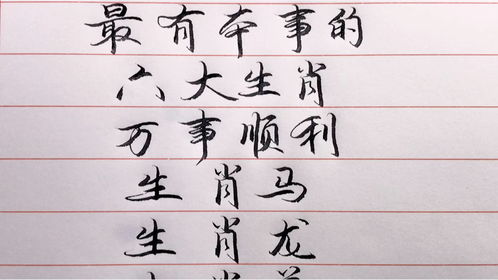 最有本事的
六大生肖
万事顺利
生肖马
生肖龙